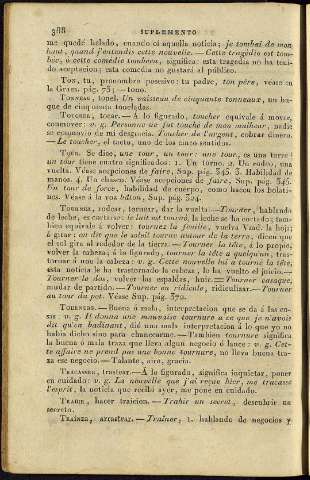 388 SUPLEMENTO
me quedé helado, cuando oí aquella noticia; je tombai de mon
haut, quand j'entendis cette nouvelle.—Cette tragédie est tom-
bée, ó cette comédie tombera, significa: esta tragedia no ha teni-
do aceptacion; esta comedia no gustará al público.
TON, tu, pronombre posesivo: tu padre, ton père, véase en
la Gram. pág. 75; — tono.
TONNEAU, tonel. Un vaisseau de cinquante tonneaux, un bu-
que de cincuenta toneladas.
TOUCHER, tocar.—A lo figurado, toucher equivale á mover,
conmover: v. g. Personne ne fut touché de mon malheur, nadie
se conmovió de mi desgracia. Toucher de l'argent, cobrar dinero.
—Le toucher, el tacto, uno de los cinco sentidos.
TOUR. Se dice, une tour, un tour: une tour, es una torre:
un tour tiene cuatro significados: 1. Un torno. 2. Un rodeo, una
vuelta. Véase acepciones de faire, Sup. pág. 345. 3. Habilidad de
manos. 4. Un chasco. Véase acepciones de faire, Sup. pág. 345.
Un tour de force, habilidad de cuerpo, como hacen los bolati-
nes. Véase á la voz bâton, Sup. pág. 324.
TOURNER, rodear, tornear, dar la vuelta.—Tourner, hablando
de leche, es cortarse: le lait est tourné, la leche se ha cortado; tam-
bien equivale á volver: tournez la feuille, vuelva Vmd. la hoja;
á girar: on dit que le soleil tourne autour de la terre, dicen que
el sol gira al rededor de la tierra.—Tourner la tête, á lo propio,
volver la cabeza; á lo figurado, tourner la tête à quelqu'un, tras-
tornar á uno la cabeza: v. g. Cette nouvelle lui a tourné la tête,
esta noticia le ha trastornado la cabeza, le ha vuelto el juicio.—
Tourner le dos, volver las espaldas, huir.—Tourner casaque,
mudar de partido.—Tourner en ridicule, ridiculizar.—Tourner
au tour du pot. Véase Sup. pág. 370.
TOURNURE.—Buena ó mala, interpretacion que se da á las co-
sas: v. g. Il donna une mauvaise tournure à ce que je n'avois
dit qu'en badinant, dió una mala interpretacion á lo que yo no
habia dicho sino para chancearme.—Tambien tournure significa
la buena ó mala traza que lleva algun negocio ó lance: v. g. Cet-
te affaire ne prend pas une bonne tournure, no lleva buena tra-
za ese negocio.—Talante, aire, gracia.
TRACASSER, trastear.—A lo figurado, significa inquietar, poner
en cuidado: v. g. La nouvelle que j'ai reçue hier, me tracasse
l'esprit, la noticia que recibí ayer, me pone en cuidado.
TRAHIR, hacer traicion.—Trahir un secret, descubrir un
secreto.
TRAÎNER, arrastrar.—Traîner, 1. hablando de negocios y